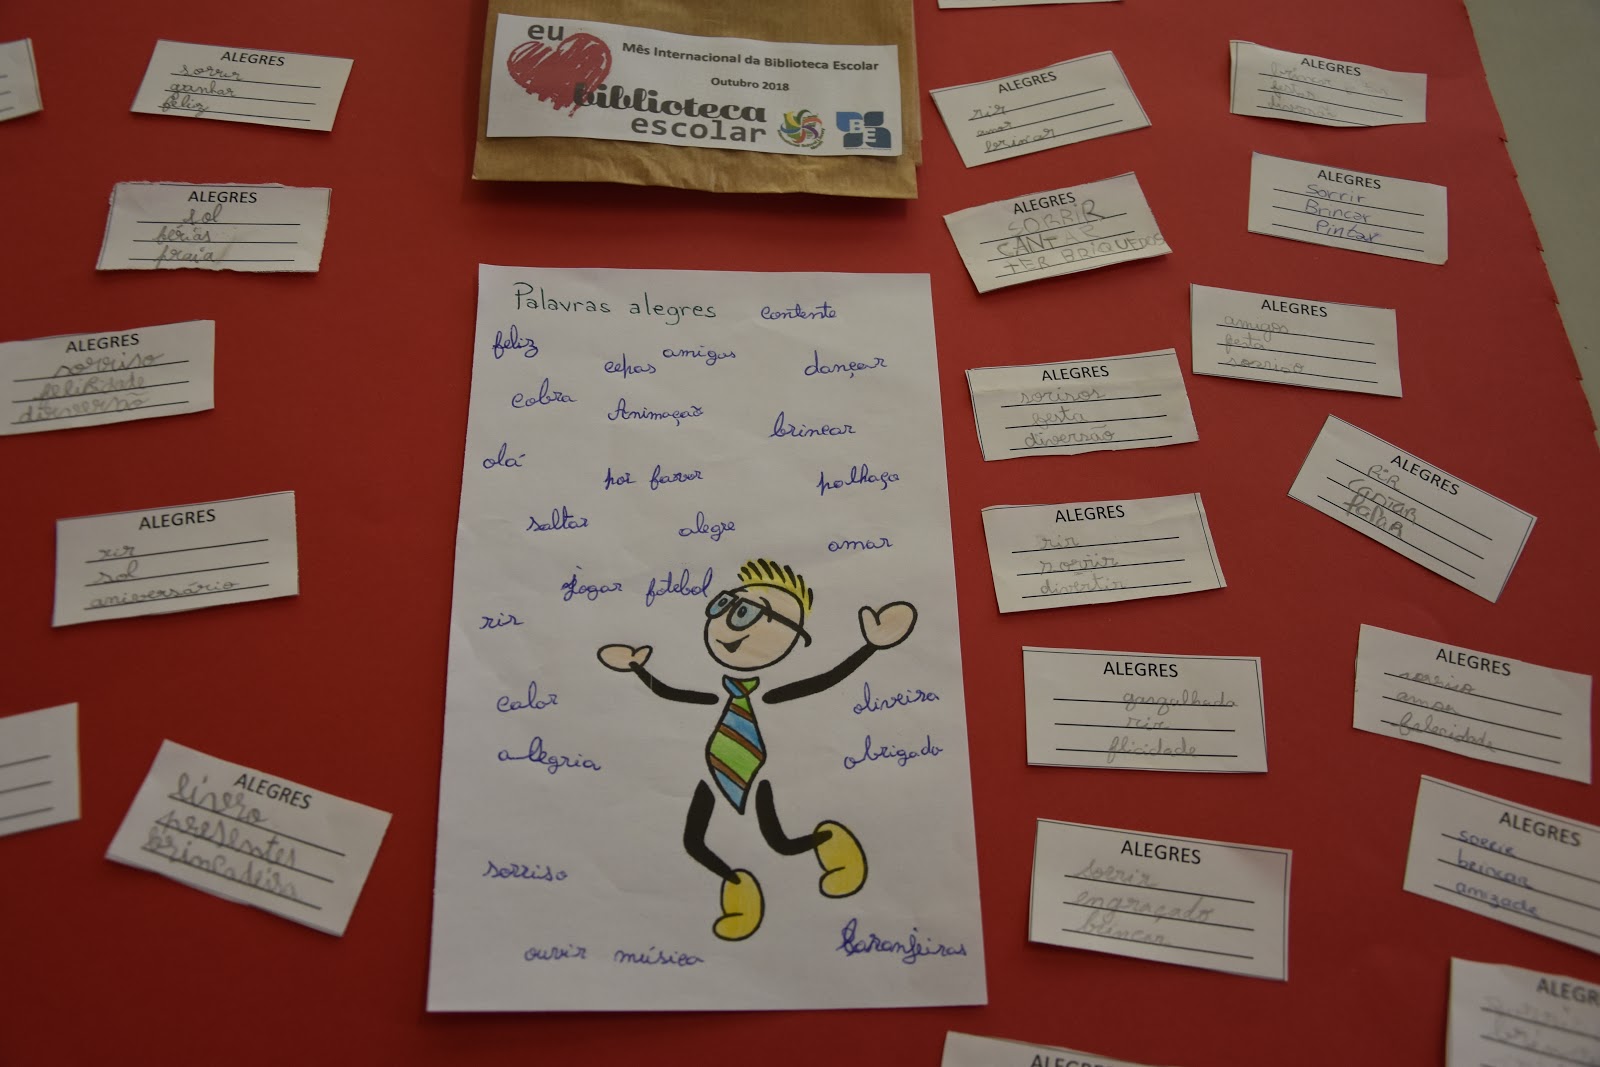 eu
biblioteca
escolar
Mês Internacional da Biblioteca Escolar
Outubro 2018
BE
ALEGRES
sorrir
ganhar
feliz
ALEGRES
sol
férias
praia
ALEGRES
sorriso
felicidade
diversão
ALEGRES
rir
sol
aniversário
ALEGRES
livro
presentes
brincadeira
Palavras alegres
contente
feliz
cepas
amigos
dançar
cobra
Animação
brincar
olá
por favor
palhaço
saltar
alegre
amar
Jogar futebol
rir
calor
oliveira
alegria
obrigado
sorriso
ouvir música
Laranjeiras
ALEGRES
rir
amor
brincar
ALEGRES
SORRIR
CANTAR
TER BRIQUEDOS
ALEGRES
sorisos
festa
diversão
ALEGRES
rir
sorrir
divertir
ALEGRES
gargalhada
rir
flicidade
ALEGRES
sorrir
engraçado
brincar
ALEGRES
ALEGRES
festas
ALEGRES
Sorrir
Brincar
Pintar
ALEGRES
amigos
festa
ALEGRES
RIR
CANTAR
ALEGRES
sorriso
amor
felecidade
ALEGRES
sorrir
brincar
amizade
ALEGR